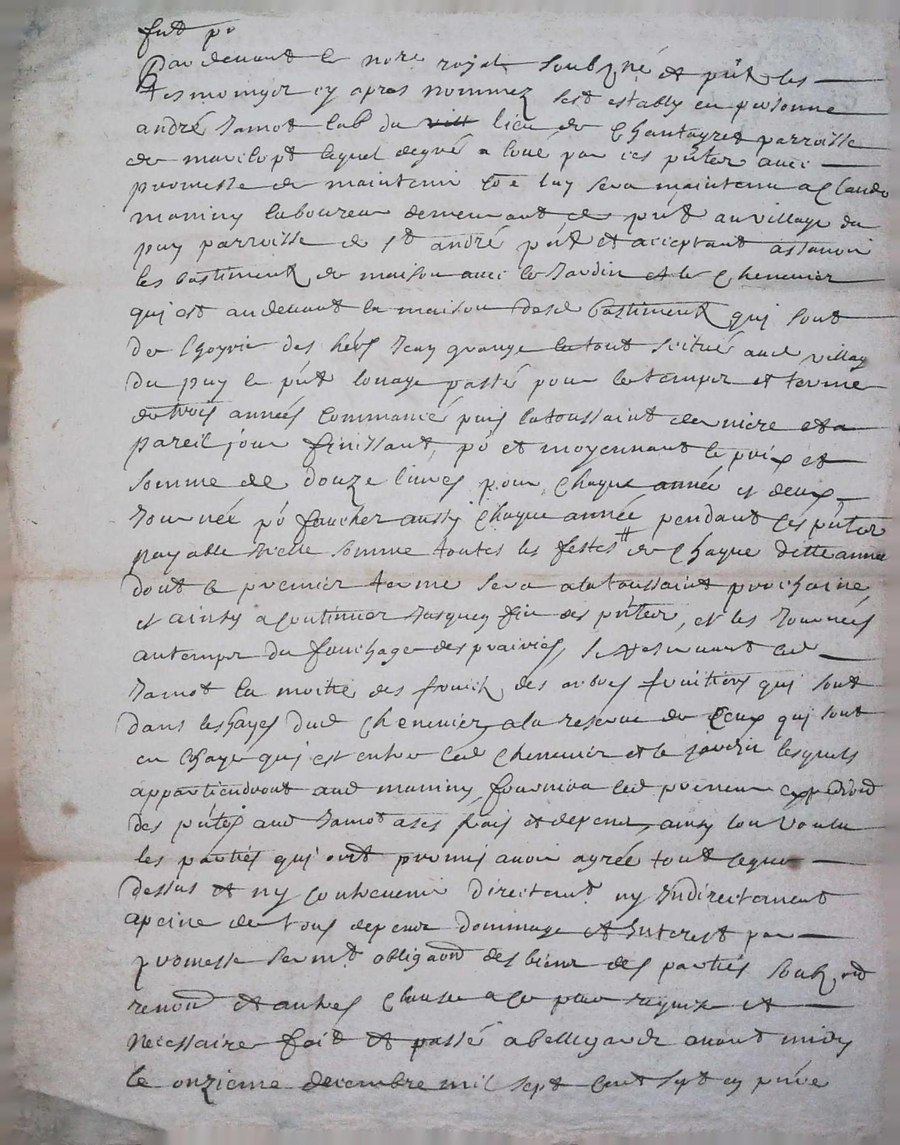 fut po
Par devant le nore royal soubzné et pnt les
tesmoingz cy apres nommez fut estably en personne
andré Jamot lab du vill lieu de Chantayret parroisse
de mori lequel de gré a loué par ces pntes avec
promesse de maintenir et luy sera maintenu a Claude
maniny laboureur demeurant de pnt au village du
puy parroisse de St andré pnt et acceptant assavoir
les bastiment de maison avec le Jardin et le Chenevier
qui est au devant la maison desd bastiment qui sont
de des hers Jean grange le tout scitué aud villag
du puy le pnt louage passé pour le temps et terme
de trois années commancé puis la toussaint derniere et a
pareil jour finissant, po et moyennant le prix et
somme de douze livres pour chaque année et deux
Journée po faucher aussy chaque année pendant ces pntes
payable icelle somme toutes les festes de chaque ditte année
dont le premier terme sera a la toussaint prochaine
et ainsy a continuer Jusques fin des pntes, et les Journées
au temps du fauchage des prairies, se reservant led
Jamot la moitié des fruicts des arbres fruitiers qui sont
dans les hayes dud Chenevier a la reserve de Ceux qui sont
en lhaye qui est entre led Chenevier et le jardin lesquels
appartiendront aud maniny, fournira led preneur expediond
des pntes aud Jamot a ses frais et depens, ainsy lon voulu
les parties qui ont promis avoir agréé tout ce que
dessus et ny contrevenir directent ny Indirectement
a peine de tous depens dommage et Interest par
promesse sermt obligaond des biens des parties soubz ond
renond et autres clause a ce pour requize et
necessaire fait et passé a bellegarde avant midy
le onzieme decembre mil sept cent sept en pnce